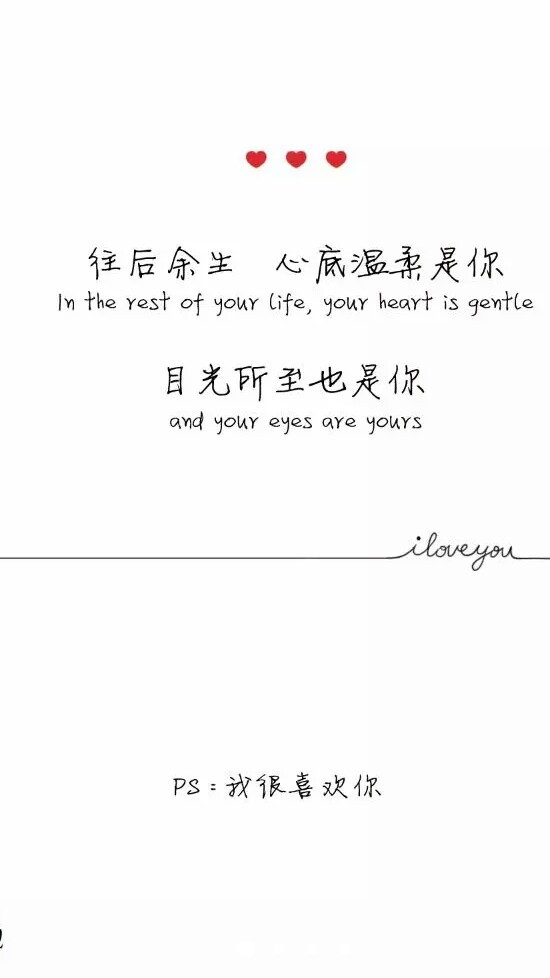 往后余生 心底温柔是你
In the rest of your life, your heart is gentle
目光所至也是你
and your eyes are yours
iloveyou
PS：我很喜欢你